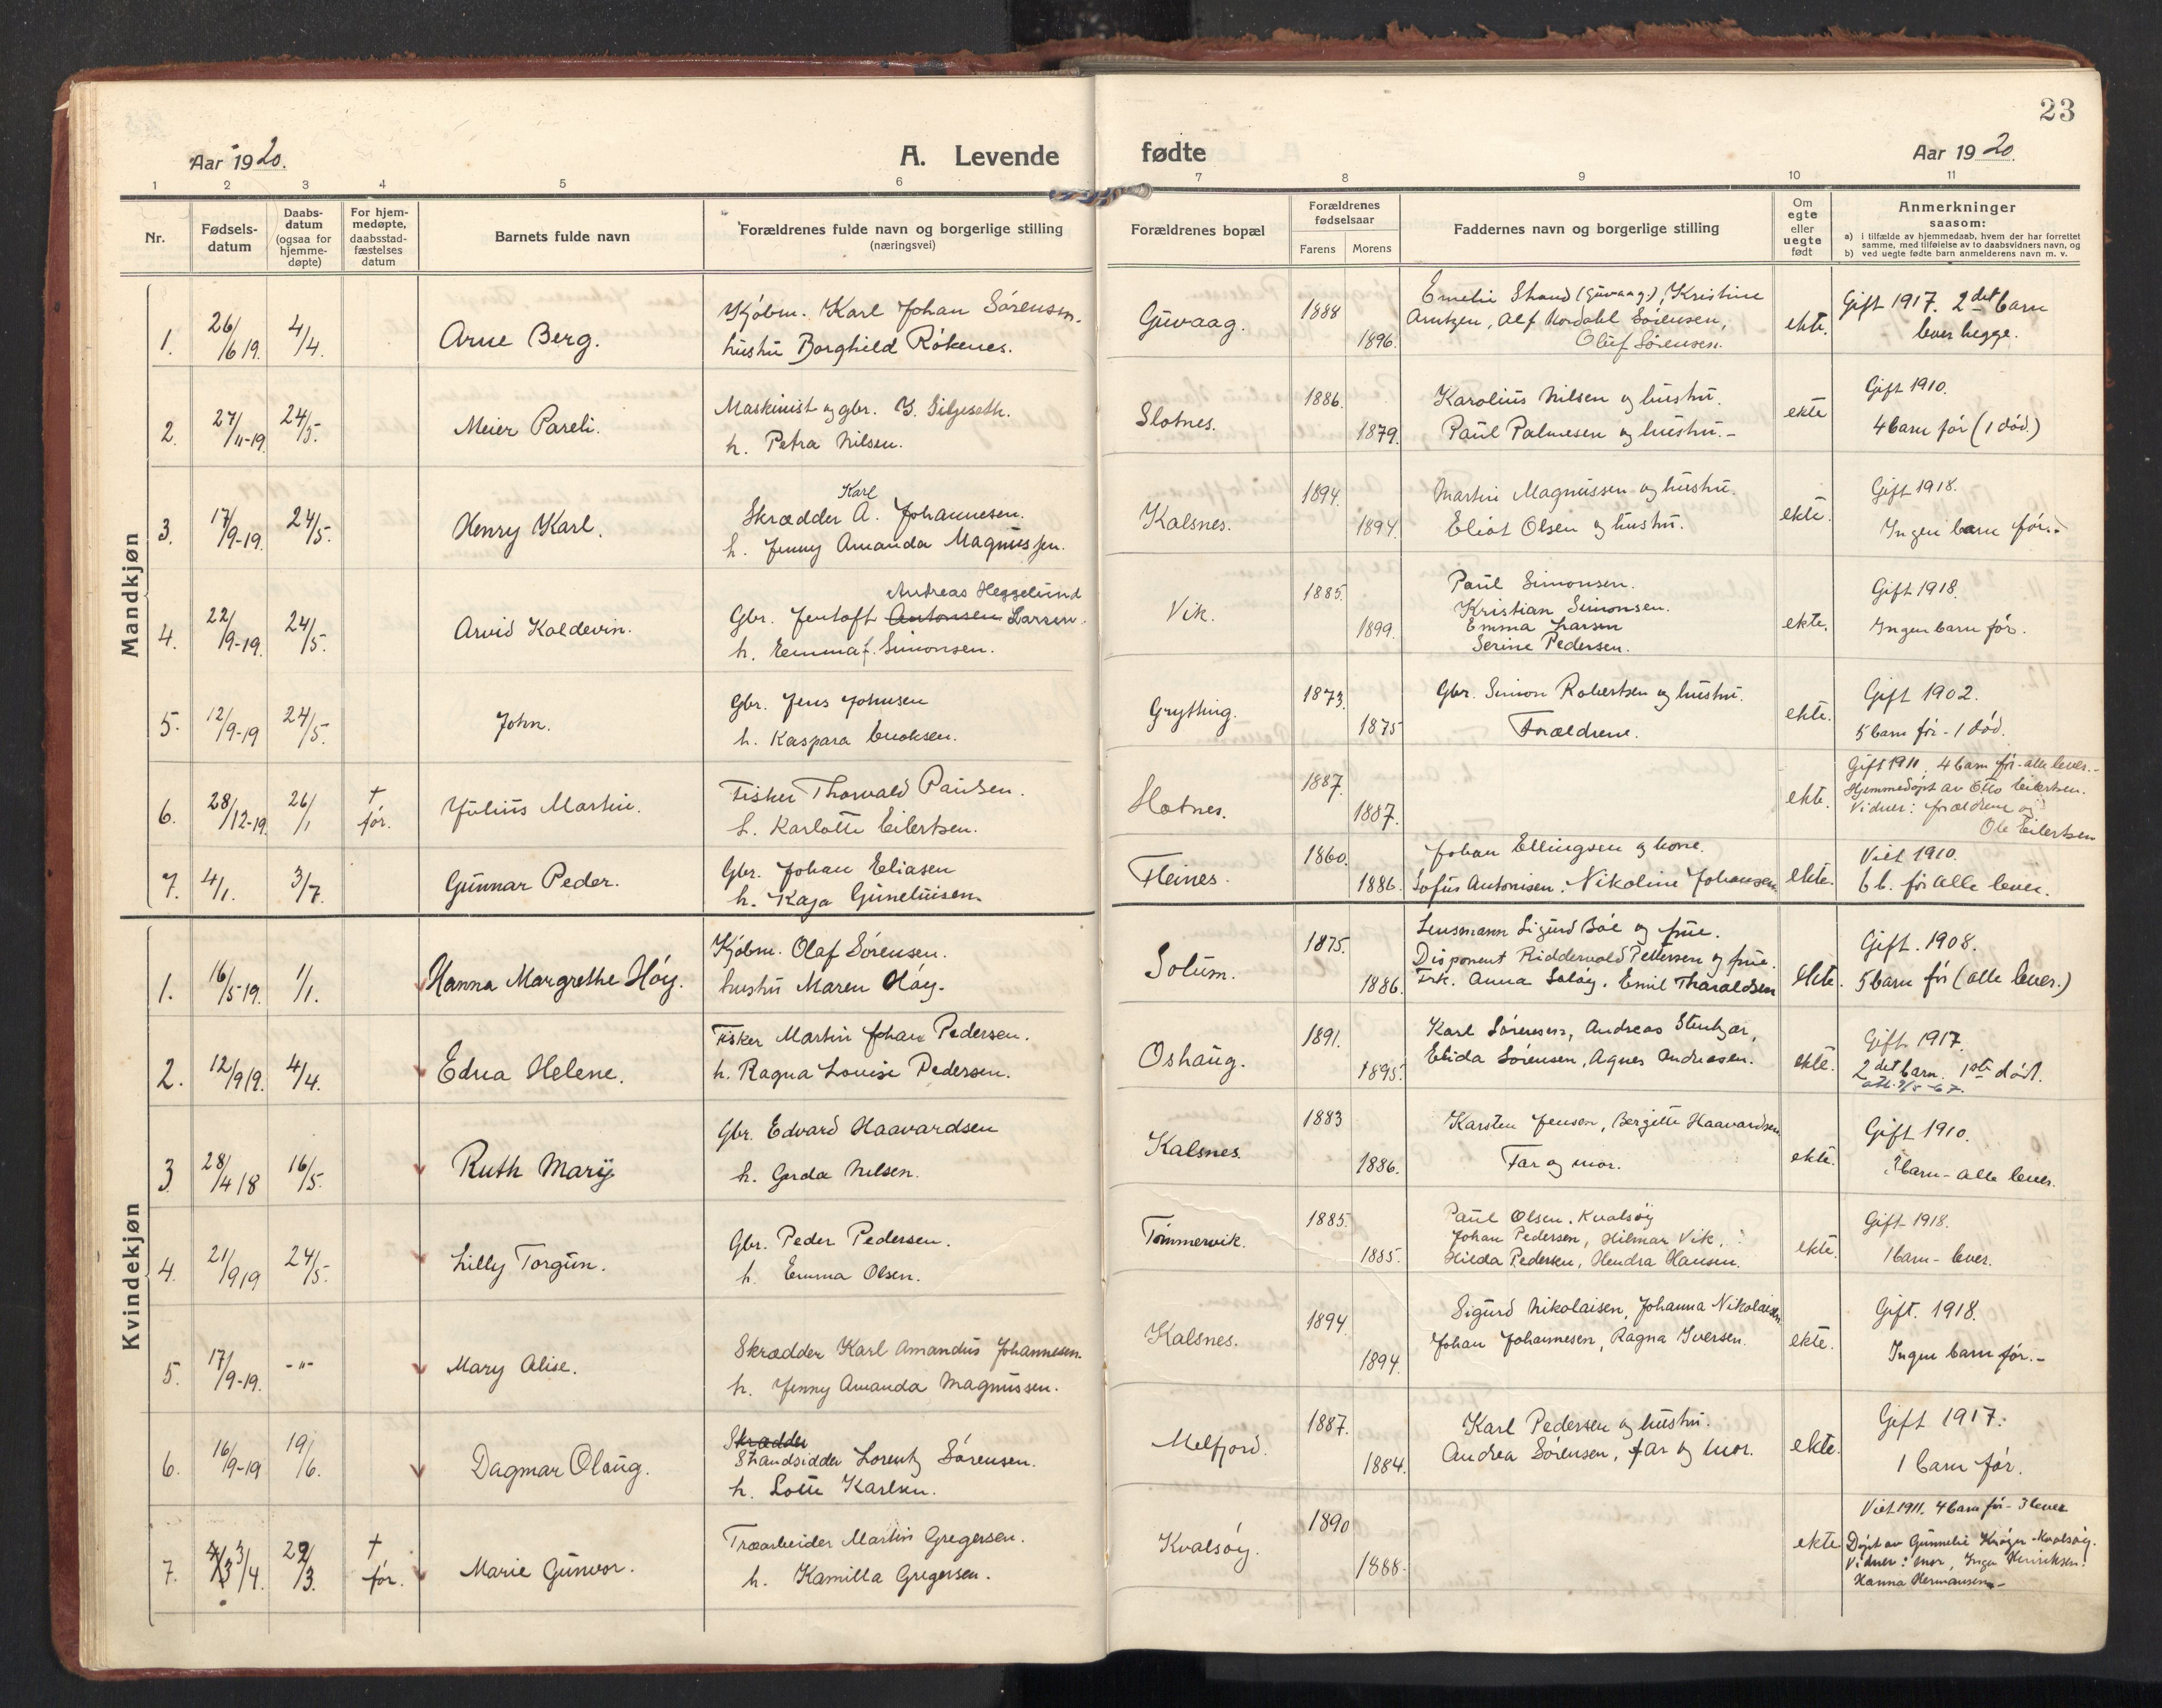 23
Aar 1920.
A. Levende
fødte
Aar 1920.
1 2 3 4 5 6 7 8 9 10 11
Nr.
Fødsels-
datum
Daabs-
datum
(ogsaa for
hjemme-
døpte)
For hjem-
medøpte,
daabsstad-
fæstelses
datum
Barnets fulde navn
Forældrenes fulde navn og borgerlige stilling
(næringsvei)
Forældrenes bopæl
Forældrenes
fødselsaar
Farens Morens
Faddernes navn og borgerlige stilling
Om
egte
eller
uegte
født
Anmerkninger
saasom:
a) i tilfælde av hjemmedaab, hvem der har forrettet
samme, med tilføielse av to daabsvidners navn, og
b) ved uegte fødte barn anmelderens navn m. v.
Mandkjøn
1. 26/6 19. 4/4. Arne Berg.
Kjøbm. Karl Johan Sørensen.
hustru Borghild Røkenes.
Guvaag. 1888 1896.
Emelie Strand (Guvaag), Kristine
Arntzen, Alf Nordahl Sørensen,
Oluf Sørensen.
ekte.
Gift 1917. 2det barn
lever begge.
2. 27/11-19. 24/5. Meier Pareli.
Maskinist og gbr. Y. Siljeseth.
h. Petra Nilsen.
Slotnes. 1886. 1879.
Karolius Nilsen og hustru.
Paul Palmesen og hustru.-
ekte
Gift 1910.
4 barn før (1 død.)
3. 17/9-19. 24/5. Henry Karl.
Karl
Skrædder A. Johannesen.
h. Jenny Amanda Magnussen.
Kalsnes. 1894. 1894.
Martin Magnussen og hustru.
Eliot Olsen og hustru.
ekte.
Gift 1918.
Ingen barn før.-
4. 22/9-19. 24/5. Arvid Koldevin.
Andreas Heggelund
Gbr. Jentoft Antonsen Larsen.
h. Emma f. Simonsen.
Vik. 1885. 1899.
Paul Simonsen.
Kristian Simonsen.
Emma Larsen
Serine Pedersen.
ekte.
Gift 1918.
Ingen barn før.
5. 12/9-19 24/5. John.
Gbr. Jens Johnsen
h. Kaspara Enoksen.
Grytting. 1873. 1875
Gbr. Simon Robertsen og hustru.
Forældrene.
ekte.
Gift 1902.
5 barn før - 1 død.
6. 28/12-19. 26/1 † før. Julius Martin.
Fisker Thorvald Paulsen.
h. Karlotte Eilertsen.
Hotnes. 1887. 1887.
ekte.
Gift 1911. 4 barn før - alle lever.-
Hjemmedøpt av Otto Eilertsen.
Vidner: forældrene og
Ole Eilertsen
7. 4/1. 3/7. Gunnar Peder.
Gbr. Johan Eliasen
h. Kaja Guneliusen.
Fleines. 1860. 1886.
Johan Ellingsen og kone.
Sofus Antonisen. Nikoline Johansen
ekte.
Viet 1910.
6 b. før alle lever.
Kvindekjøn
1. 16/5-19. 1/1. Hanna Margrethe Høy.
Kjøbm. Olaf Sørensen.
hustru Maren Høy.
Solum. 1875. 1886.
Lensmann Sigurd Bøe og frue.
Disponent Riddervold Pettersen og frue.
Frk. Anna Soløy. Emil Tharaldsen
ekte.
Gift. 1908.
5 barn før (alle lever.)
2. 12/9 19. 4/4. Edna Helene.
Fisker Martin Johan Pedersen.
h. Ragna Louise Pedersen.
Oshaug. 1891. 1895.
Karl Sørensen, Andreas
Elida Sørensen, Agnes Andreasen.
ekte.
Gift 1917.
2det barn. 1ste død.
3 28/4 18 16/5. Ruth Mary
Gbr. Edvard Haavardsen
h. Gerda Nilsen.
Kalsnes. 1883 1886.
Karsten Jensen, Bergitte Haavardsen
Far og mor.
ekte.
Gift 1910.
3 barn - alle lever.
4. 21/9 19 24/5. Lilly Torgun.
Gbr. Peder Pedersen.
h. Emma Olsen.
Tømmervik. 1885. 1885.
Paul Olsen. Kvalsøy
Johan Pedersen, Hilmar Vik,
Hilda Pedersen, Hendra Hansen.
ekte.
Gift 1918.
1 barn - lever.
5. 17/9-19. -"- Mary Alise.
Skrædder Karl Amandus Johannesen.
h. Jenny Amanda Magnussen.
Kalsnes. 1894. 1894.
Sigurd Nikolaisen, Johanna Nikolaisen
Johan Johannesen, Ragna Iversen.
ekte.
Gift. 1918.
Ingen barn før.-
6. 16/9-19 19/6. Dagmar Olaug.
Skrædder
Strandsidder Lorentz Sørensen.
h. Lotte Karlsen.
Melfjord. 1887. 1884.
Karl Pedersen og hustru.
Andrea Sørensen, far og mor.
ekte.
Gift 1917.
1 barn før.
7. 3/4. 29/3. † før. Marie Gunvor.
Træarbeider Martin Gregersen.
h. Kamilla Gregersen.
Kvalsøy. 1890 1888.
ekte
Viet 1911. 4 barn før - 3 lever
Døpt av Gunnelie Krøger - Kvalsøy.
Vidner: mor, Inga Henriksen.
Hanna Hermansen.-